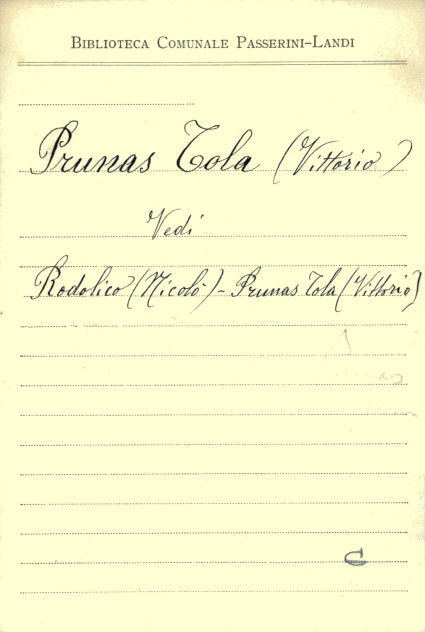 BIBLIOTECA COMUNALE PASSERINI-LANDI
Prunas Tola (Vittorio)
Vedi
Rodolico (Nicolò) - Prunas Tola (Vittorio)
C